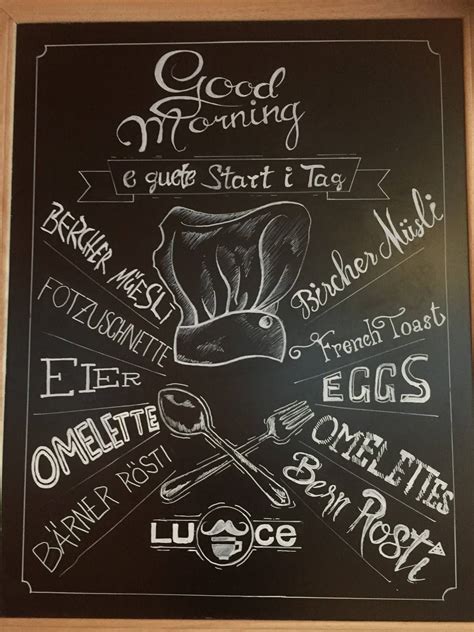 Good
Morning
e guete Start i Tag
BERCHER MÜESLI
FOTZUSCHNETTE
EIER
OMELETTE
BÄRNER RÖSTI
Bircher Müsli
French Toast
EGGS
OMELETTES
Bern Rösti
LU ce